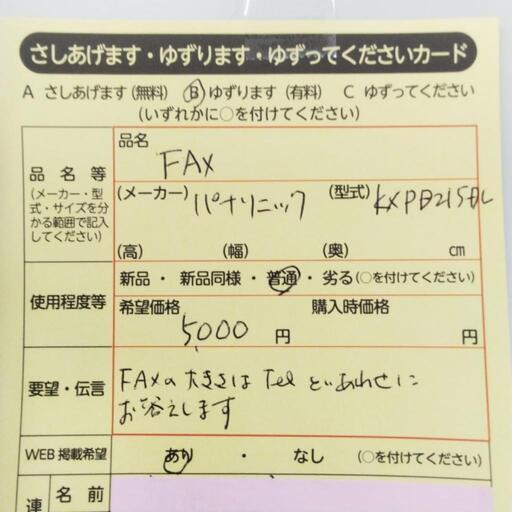 さしあげます・ゆずります・ゆずってくださいカード
A さしあげます(無料) B ゆずります(有料) C ゆずってください
(いずれかに○を付けてください)
品名等
(メーカー・型式・サイズを分かる範囲で記入してください)
品名
FAX
(メーカー) パナソニック (型式)
(高) (幅) (奥) cm
使用程度等
新品・新品同様・普通・劣る(○を付けてください)
希望価格 購入時価格
5000円 円
要望・伝言
FAXの大きさはTelといあわせに
お答えします
WEB掲載希望 あり ・ なし (○を付けてください)
連 名前